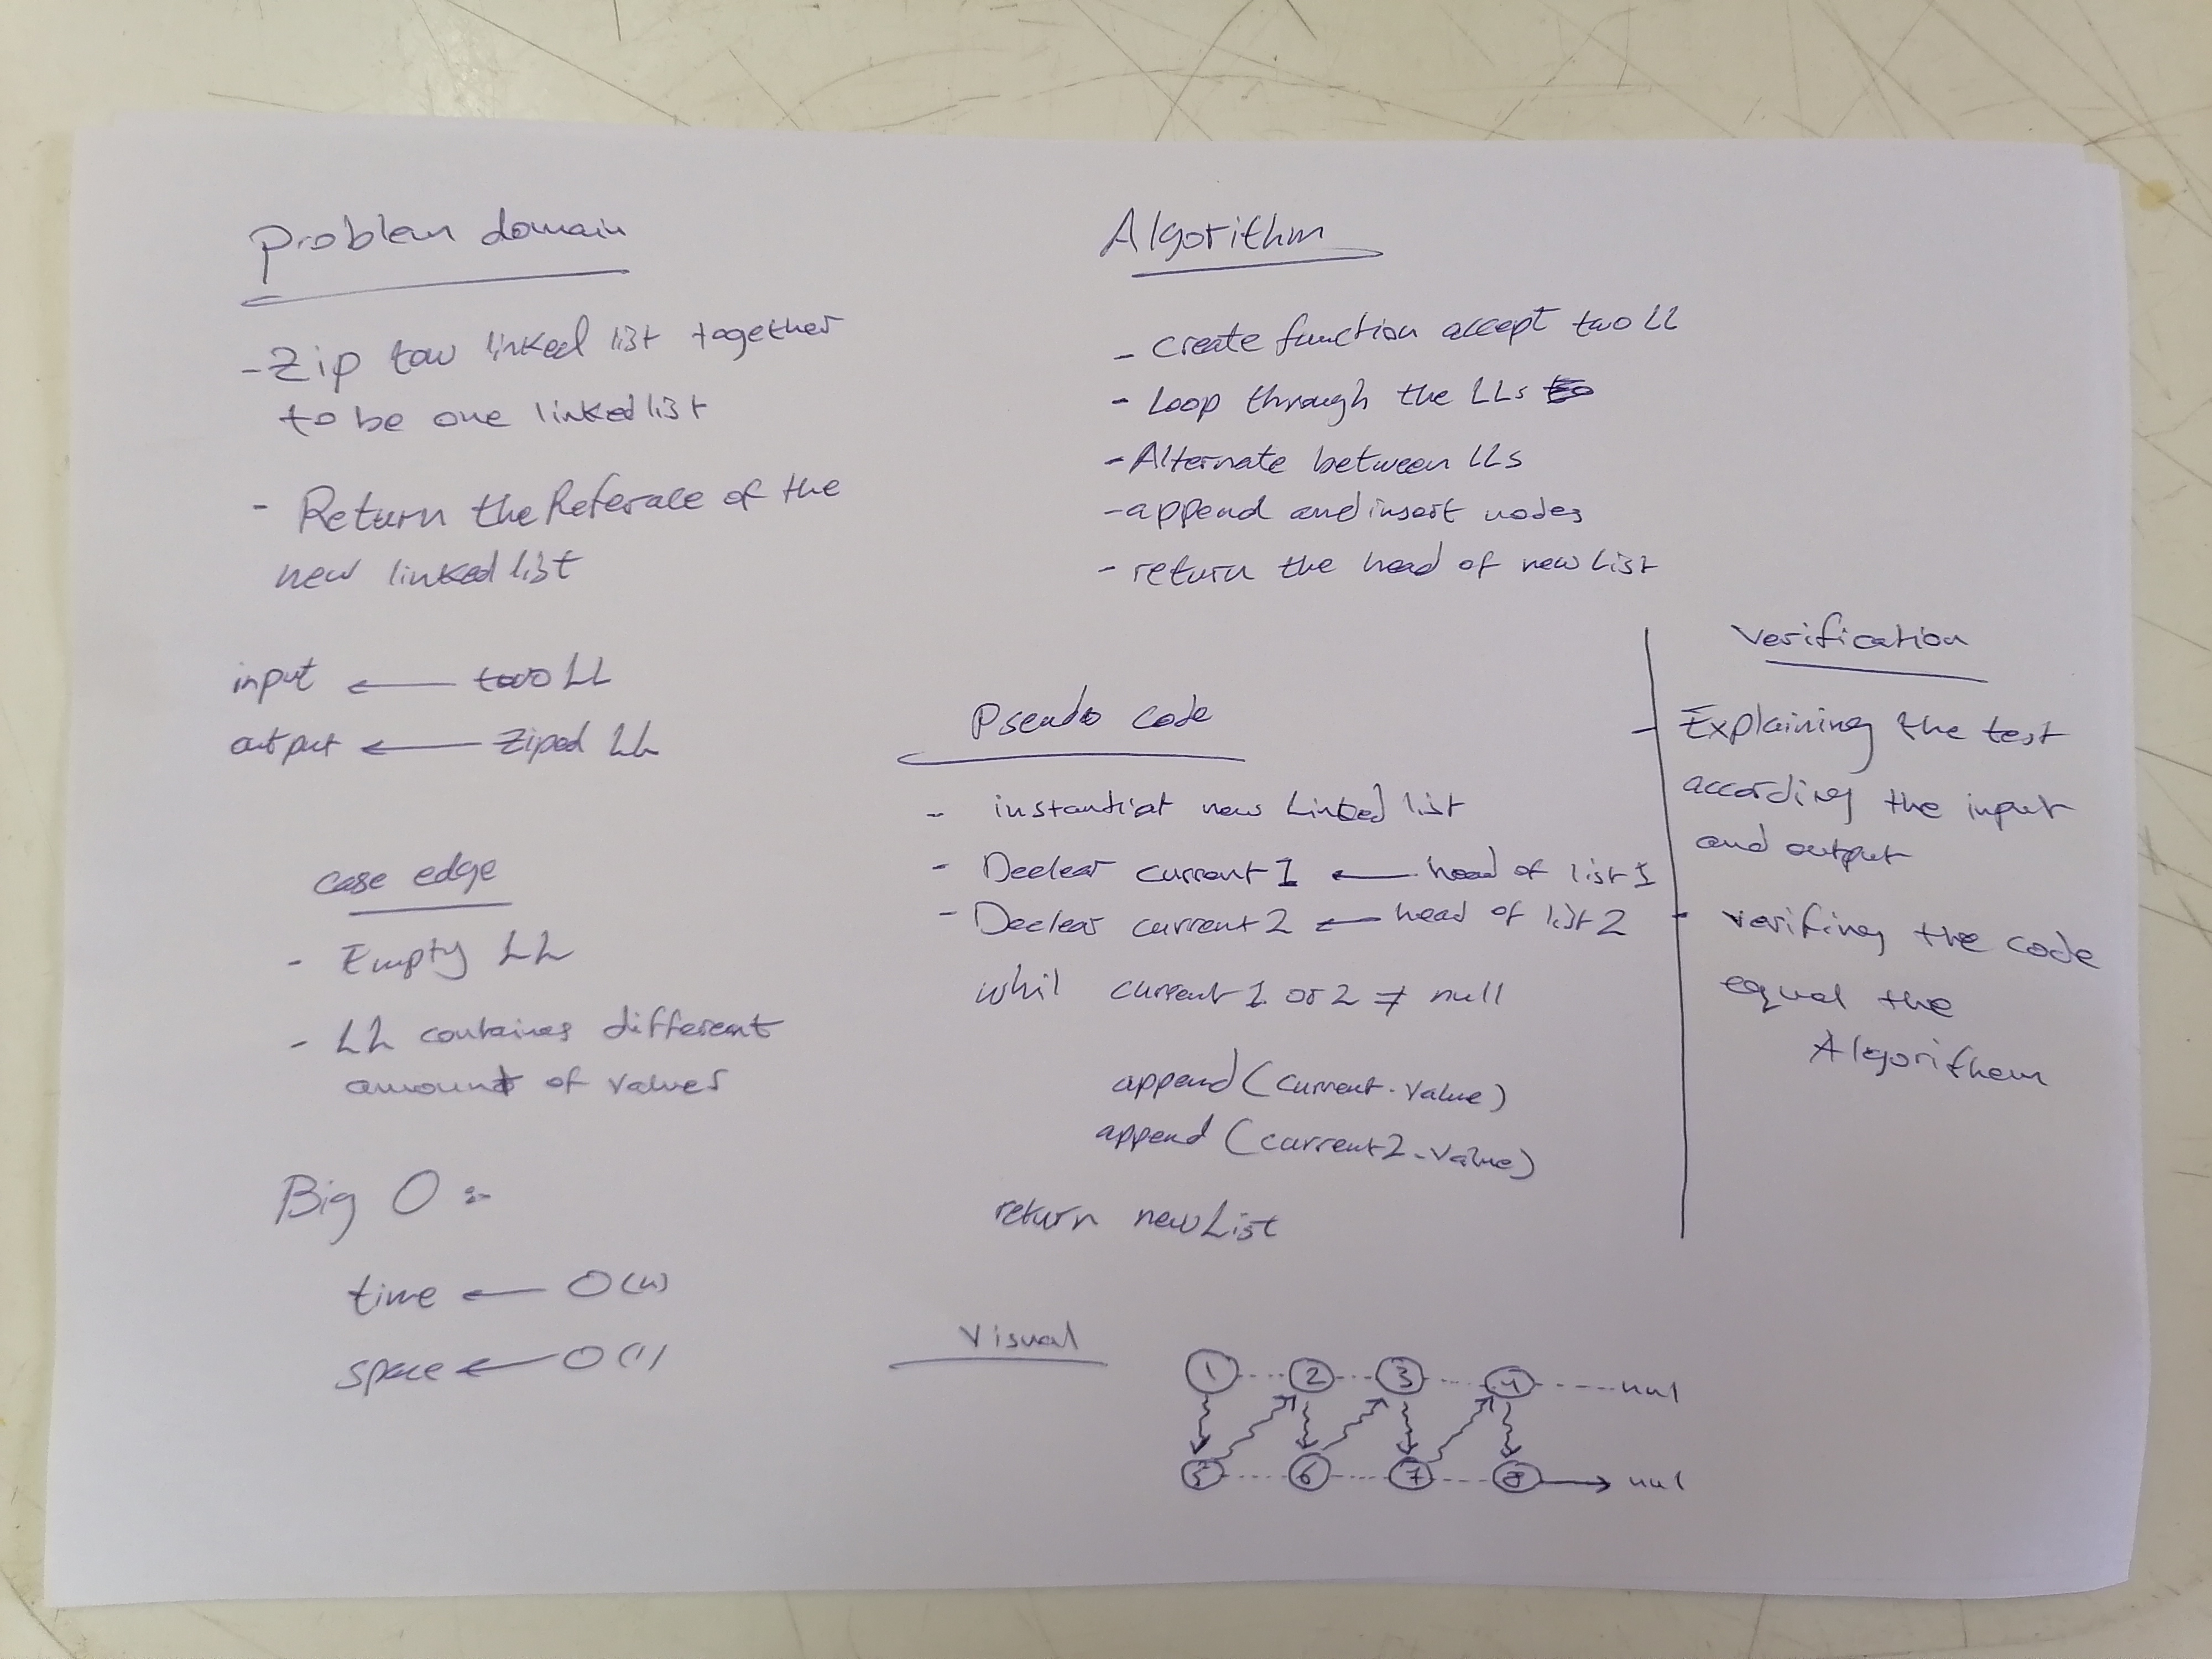 Problem domain
- Zip tow linked list together
to be one linked list
- Return the Referale of the
new linked list
input ← two LL
output ← Ziped LL
case edge
- Empty LL
- LL containes different
amount of values
Big O :-
time ← O(n)
space ← O(1)
Algorithm
- create function accept two LL
- Loop through the LLs
- Alternate between LLs
- append and insert nodes
- return the head of new list
Pseudo code
- instantiat new Linked list
- Declear current1 ← head of list1
- Declear current2 ← head of list2
whil current1 or 2 ≠ null
append(current.value)
append(current2.value)
return newList
Verification
- Explaining the test
according the input
and output
- verifing the code
equal the
Algorithem
Visual
1 2 3 4 nul
5 6 7 8 → nul